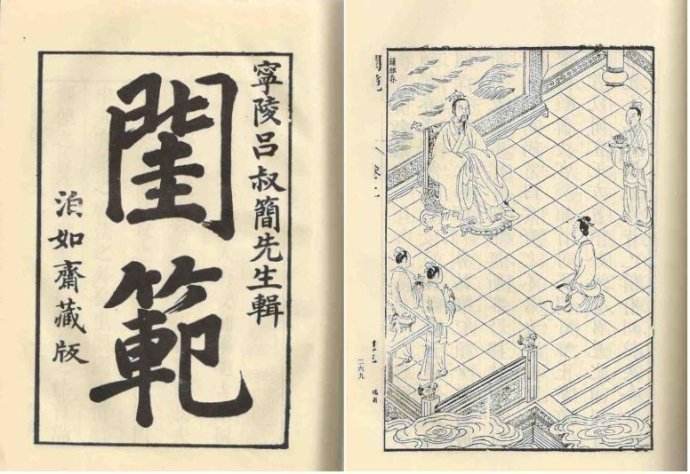 寧陵呂叔簡先生輯
閨範
泊如齋藏版
閨範
二六九